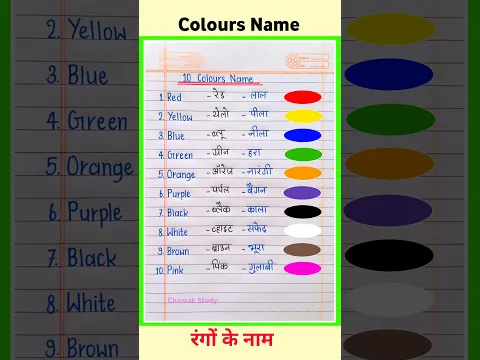 Colours Name
10 Colours Name
1. Red - रेड - लाल
2. Yellow - येलो - पीला
3. Blue - ब्लू - नीला
4. Green - ग्रीन - हरा
5. Orange - ऑरेंज - नारंगी
6. Purple - पर्पल - बैंगन
7. Black - ब्लैक - काला
8. White - व्हाइट - सफेद
9. Brown - ब्राउन - भूरा
10. Pink - पिंक - गुलाबी
Chamak Study
रंगों के नाम
2. Yellow
3. Blue
4. Green
5. Orange
6. Purple
7. Black
8. White
9. Brown